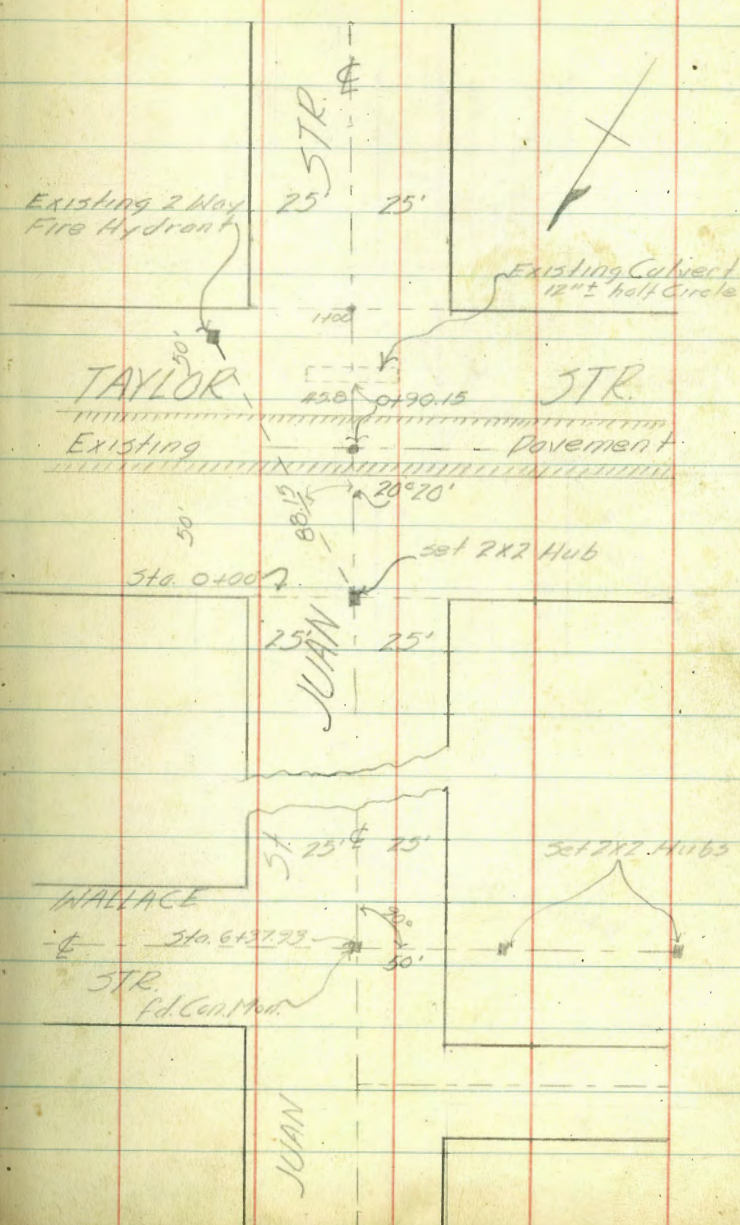 ℄
STR.
25' 25'
Existing 2 Way
Fire Hydrant
Existing Culvert
12"± half Circle
1+00
50'
TAYLOR STR.
0+90.15
Existing Pavement
20°20'
88.15
50'
set 2X2 Hub
Sta. 0+00
25' 25'
JUAN
St
25' ℄ 25'
Set 2X2 Hubs
WALLACE
℄ Sta. 6+37.93
50'
STR.
fd. Con. Mon.
JUAN